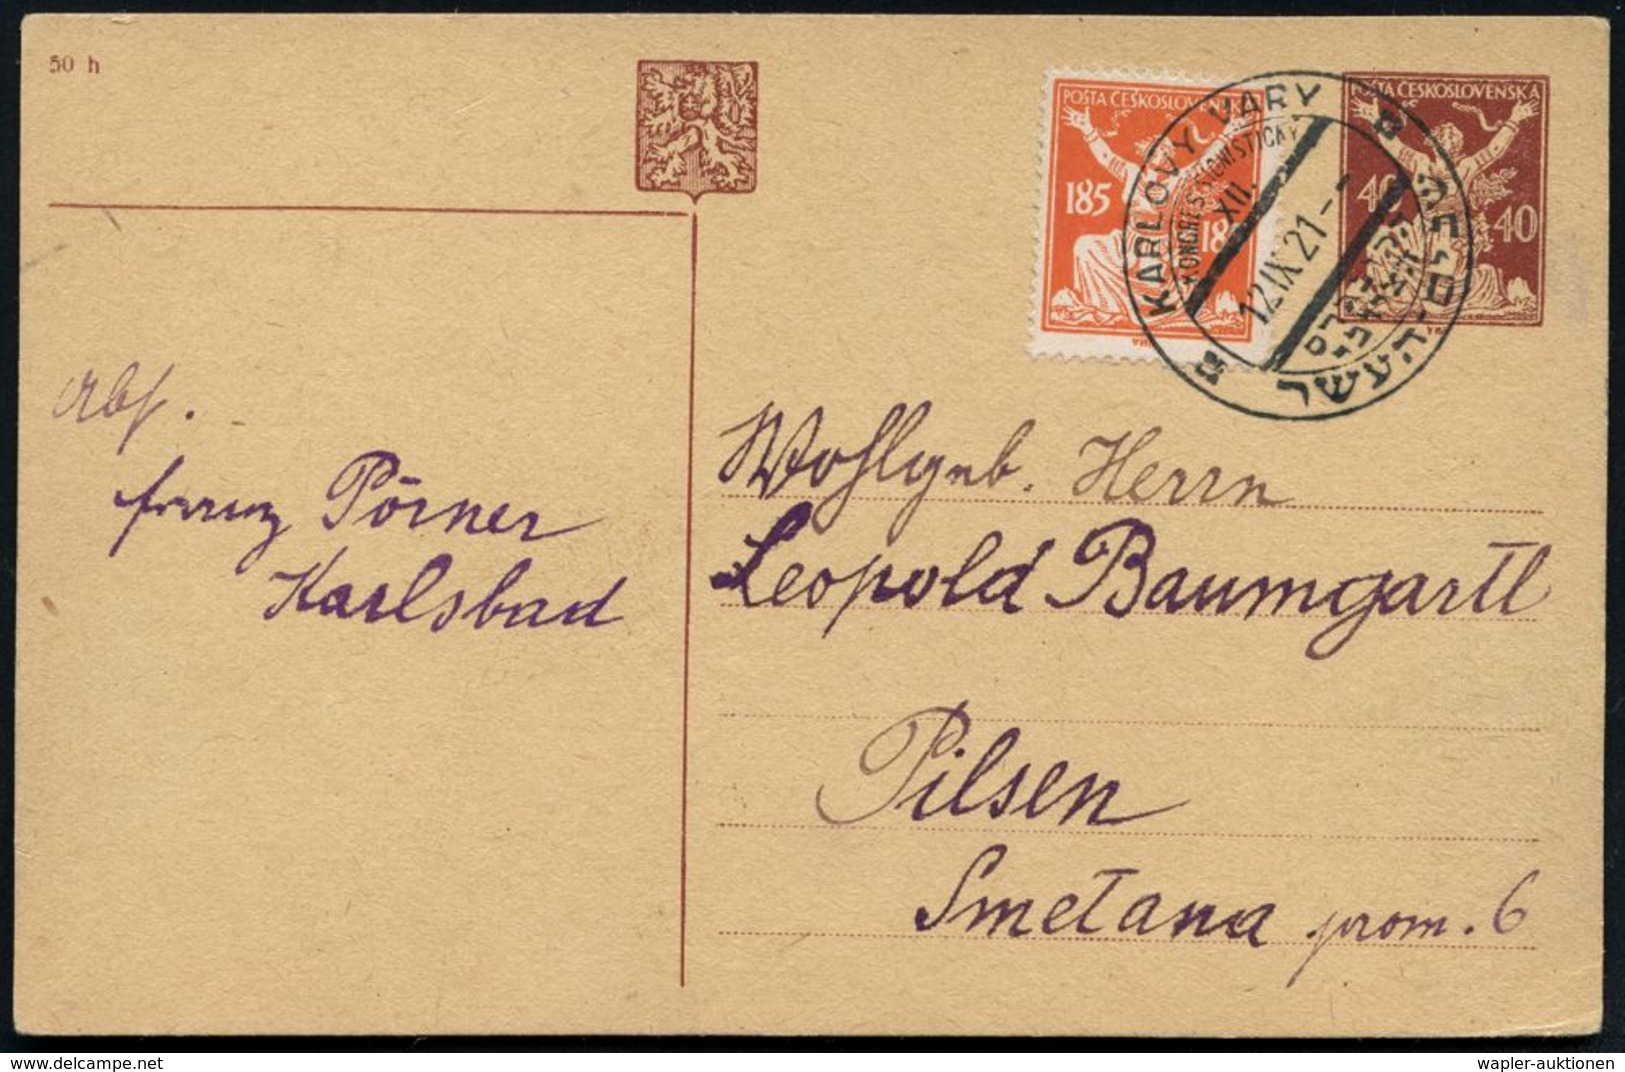 50 h
POŠTA ČESKOSLOVENSKÁ
185
18
POŠTA ČESKOSLOVENSKÁ
40
40
KARLOVY VARY
KONGRES SIONISTICKÝ
XII.
12.IX.21-
העשר
Abs.
Franz Pörner
Karlsbad
Wohlgeb. Herrn
Leopold Baumgartl
Pilsen
Smetana prom. 6
delcampe.net
wapler-auktionen